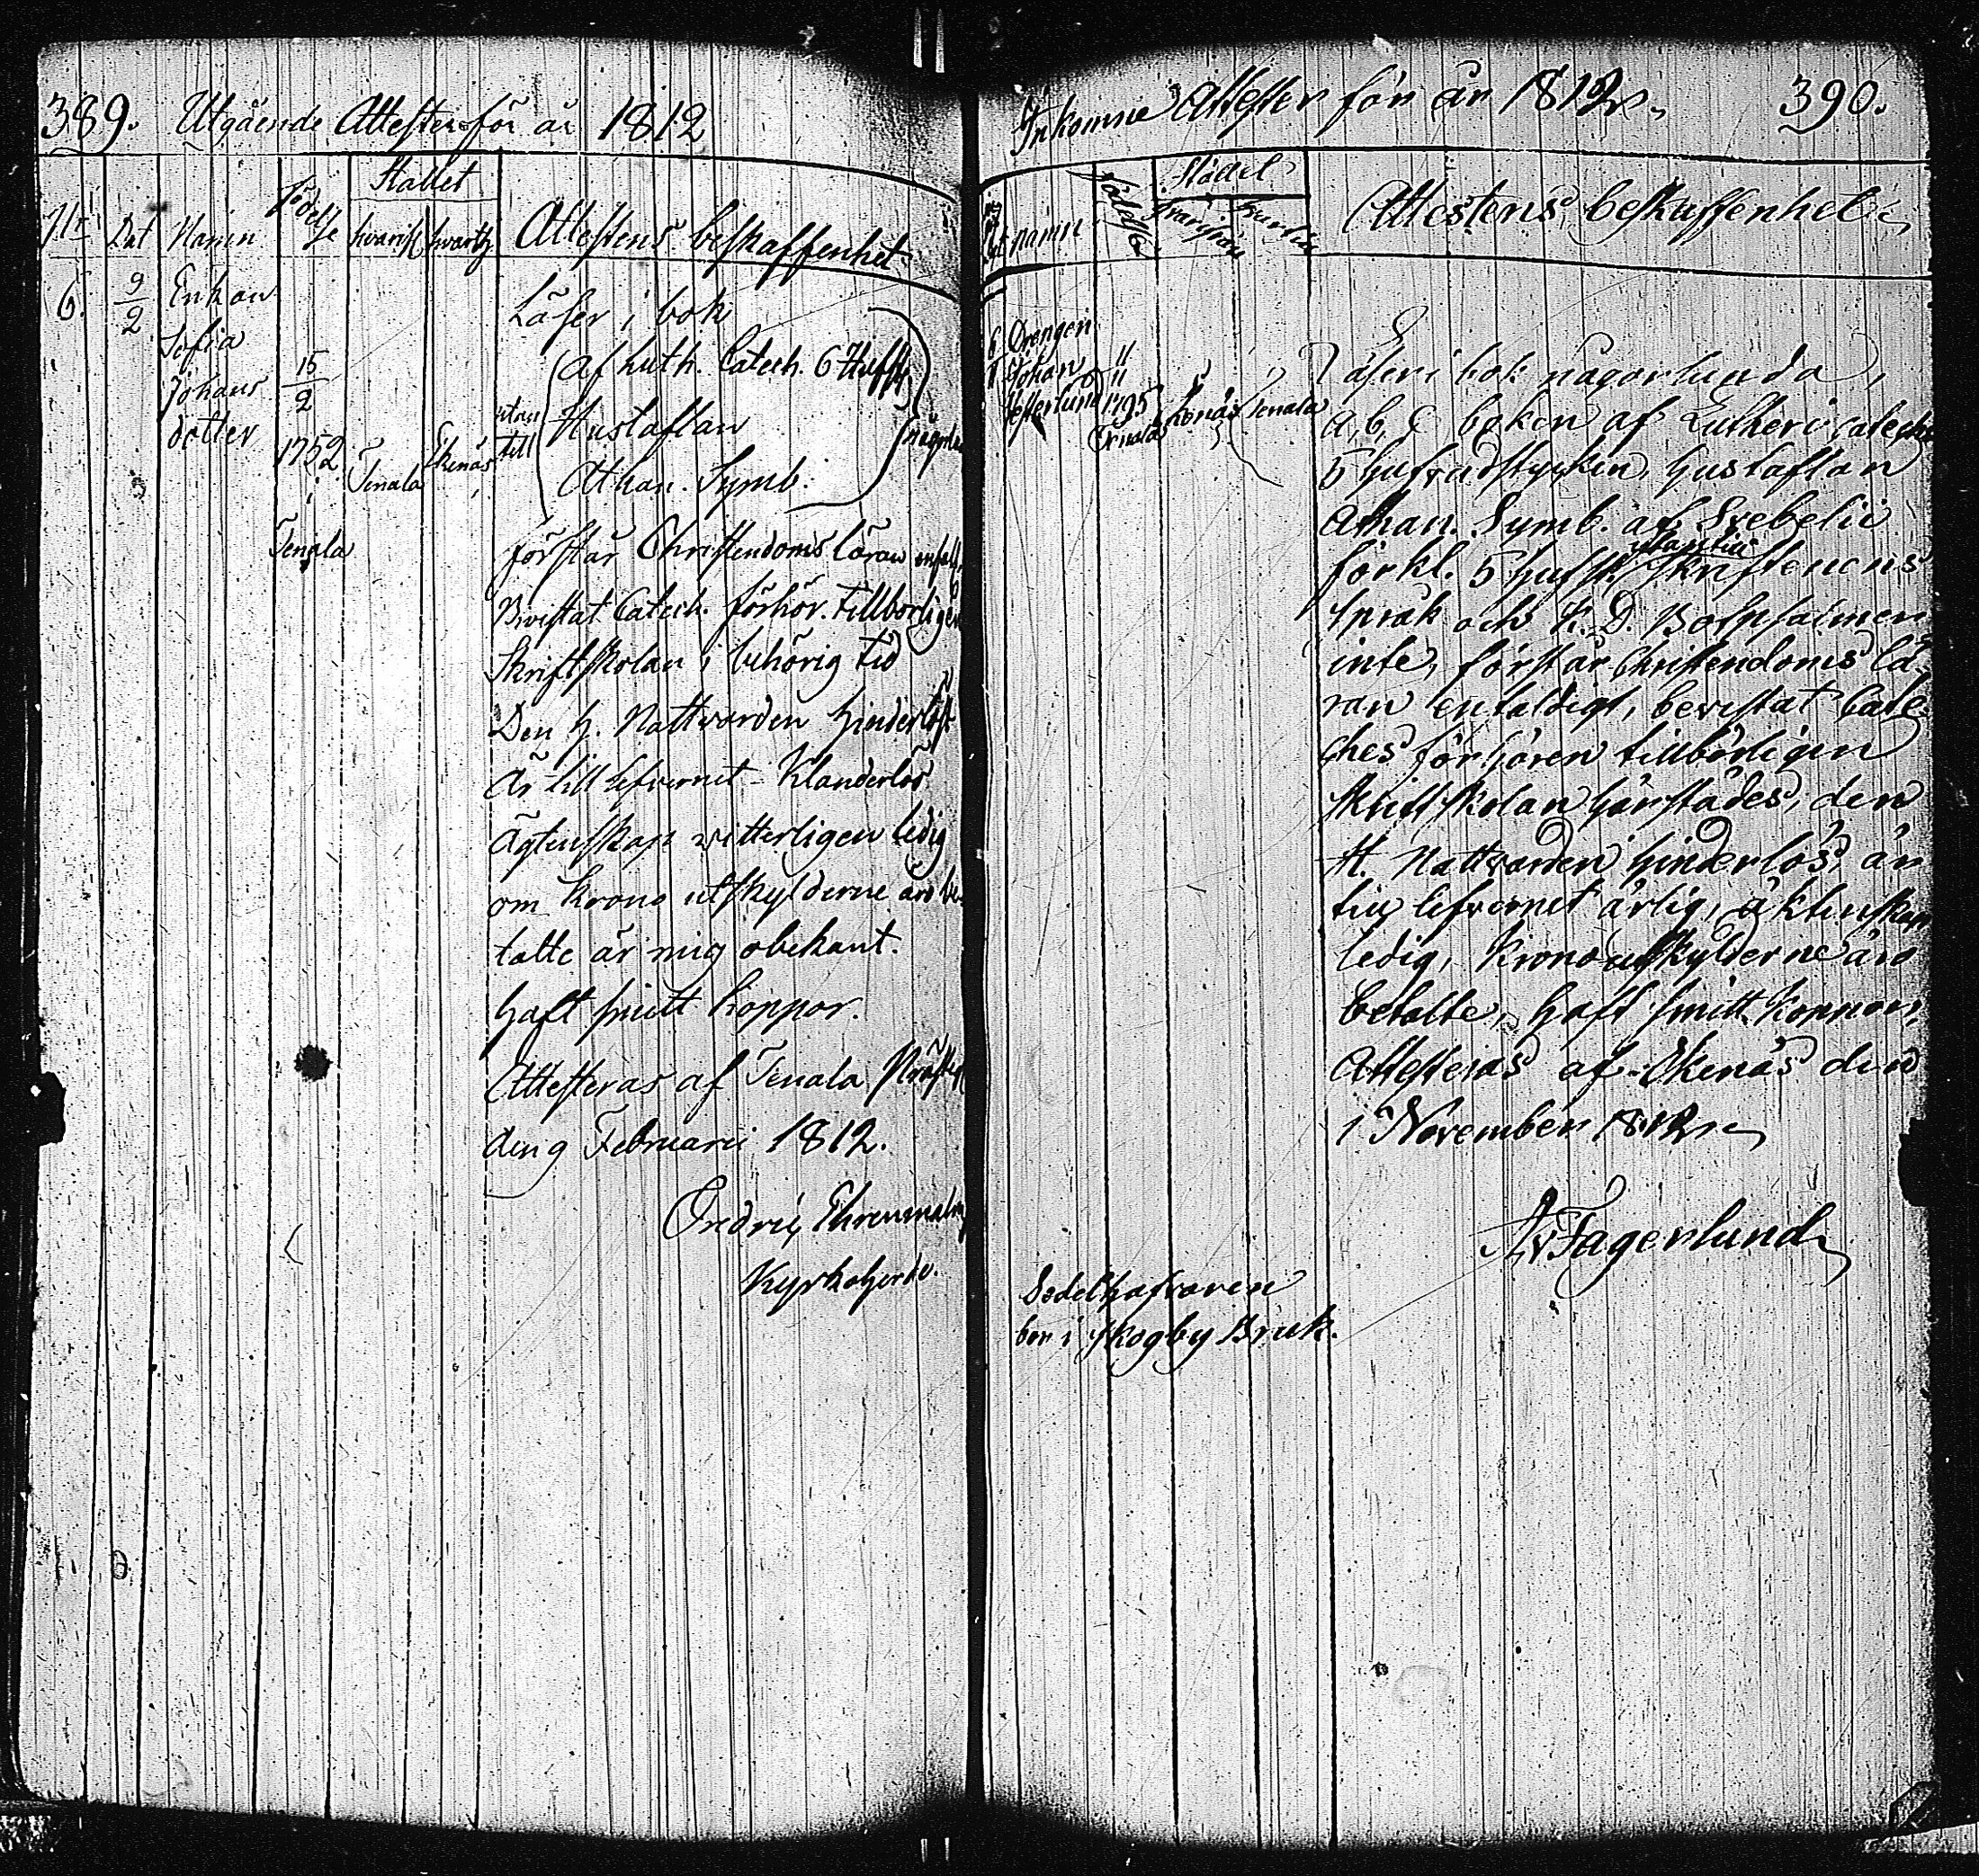 389. Utgående Attester för år 1812
Stället
No Dat Namn Födelse hvarifr hvartil Attestens beskaffenhet
6. 9/2 Enkan
Sofia
Johans
dotter
15/2
1752
i
Tenala
Tenala
Ekenäs
Läser i bok
utan till
af Luth. Catech. 6 Hufst
Hustaflan
Athan. Symb.
förstår Christendoms läran enfalt
Bevistat Catech. förhör. tillbörligen
Skriftskolan i behörig tid
Den H. Nattvarden hinderlöst
Är till lefvernet Klanderlös
Ägtenskap vitterligen ledig
om Krono utskylderne äro be-
talte är mig obekant.
haft smitt koppor.
Attesteras af Tenala Präste
den 9 Februarii 1812.
Ehrenmalm
Kyrkoherde.
Inkomne Attester för år 1812. 390.
Stället
namn födelse hvarifrån hvartill Attestens beskaffenhet
6 Drengen
Johan
1795
Tenala
Ekenäs
Tenala
Läser i bok någorlunda,
a, b, c boken af Lutheri cateches
5 hufvudstycken, hustaflan
Athan. Symb. af Svebelii
förkl. 5 hufst. utantill Skriftenens
språk och K. D. Botpsalmen
inte, förstår Christendoms lä-
ran enfaldigt, bevistat Cate-
ches förhören tillbörligen
Skriftskolan härstädes, den
H. Nattvarden hinderlöst, är
till lefvernet ärlig, äktenskap
ledig, Krono utskylderne äro
betalte, haft smitt koppor,
Attesteras af Ekenäs den
1 November 1812.
Fagerlund
Sedelhafvaren
bor i Skogby Bruk.